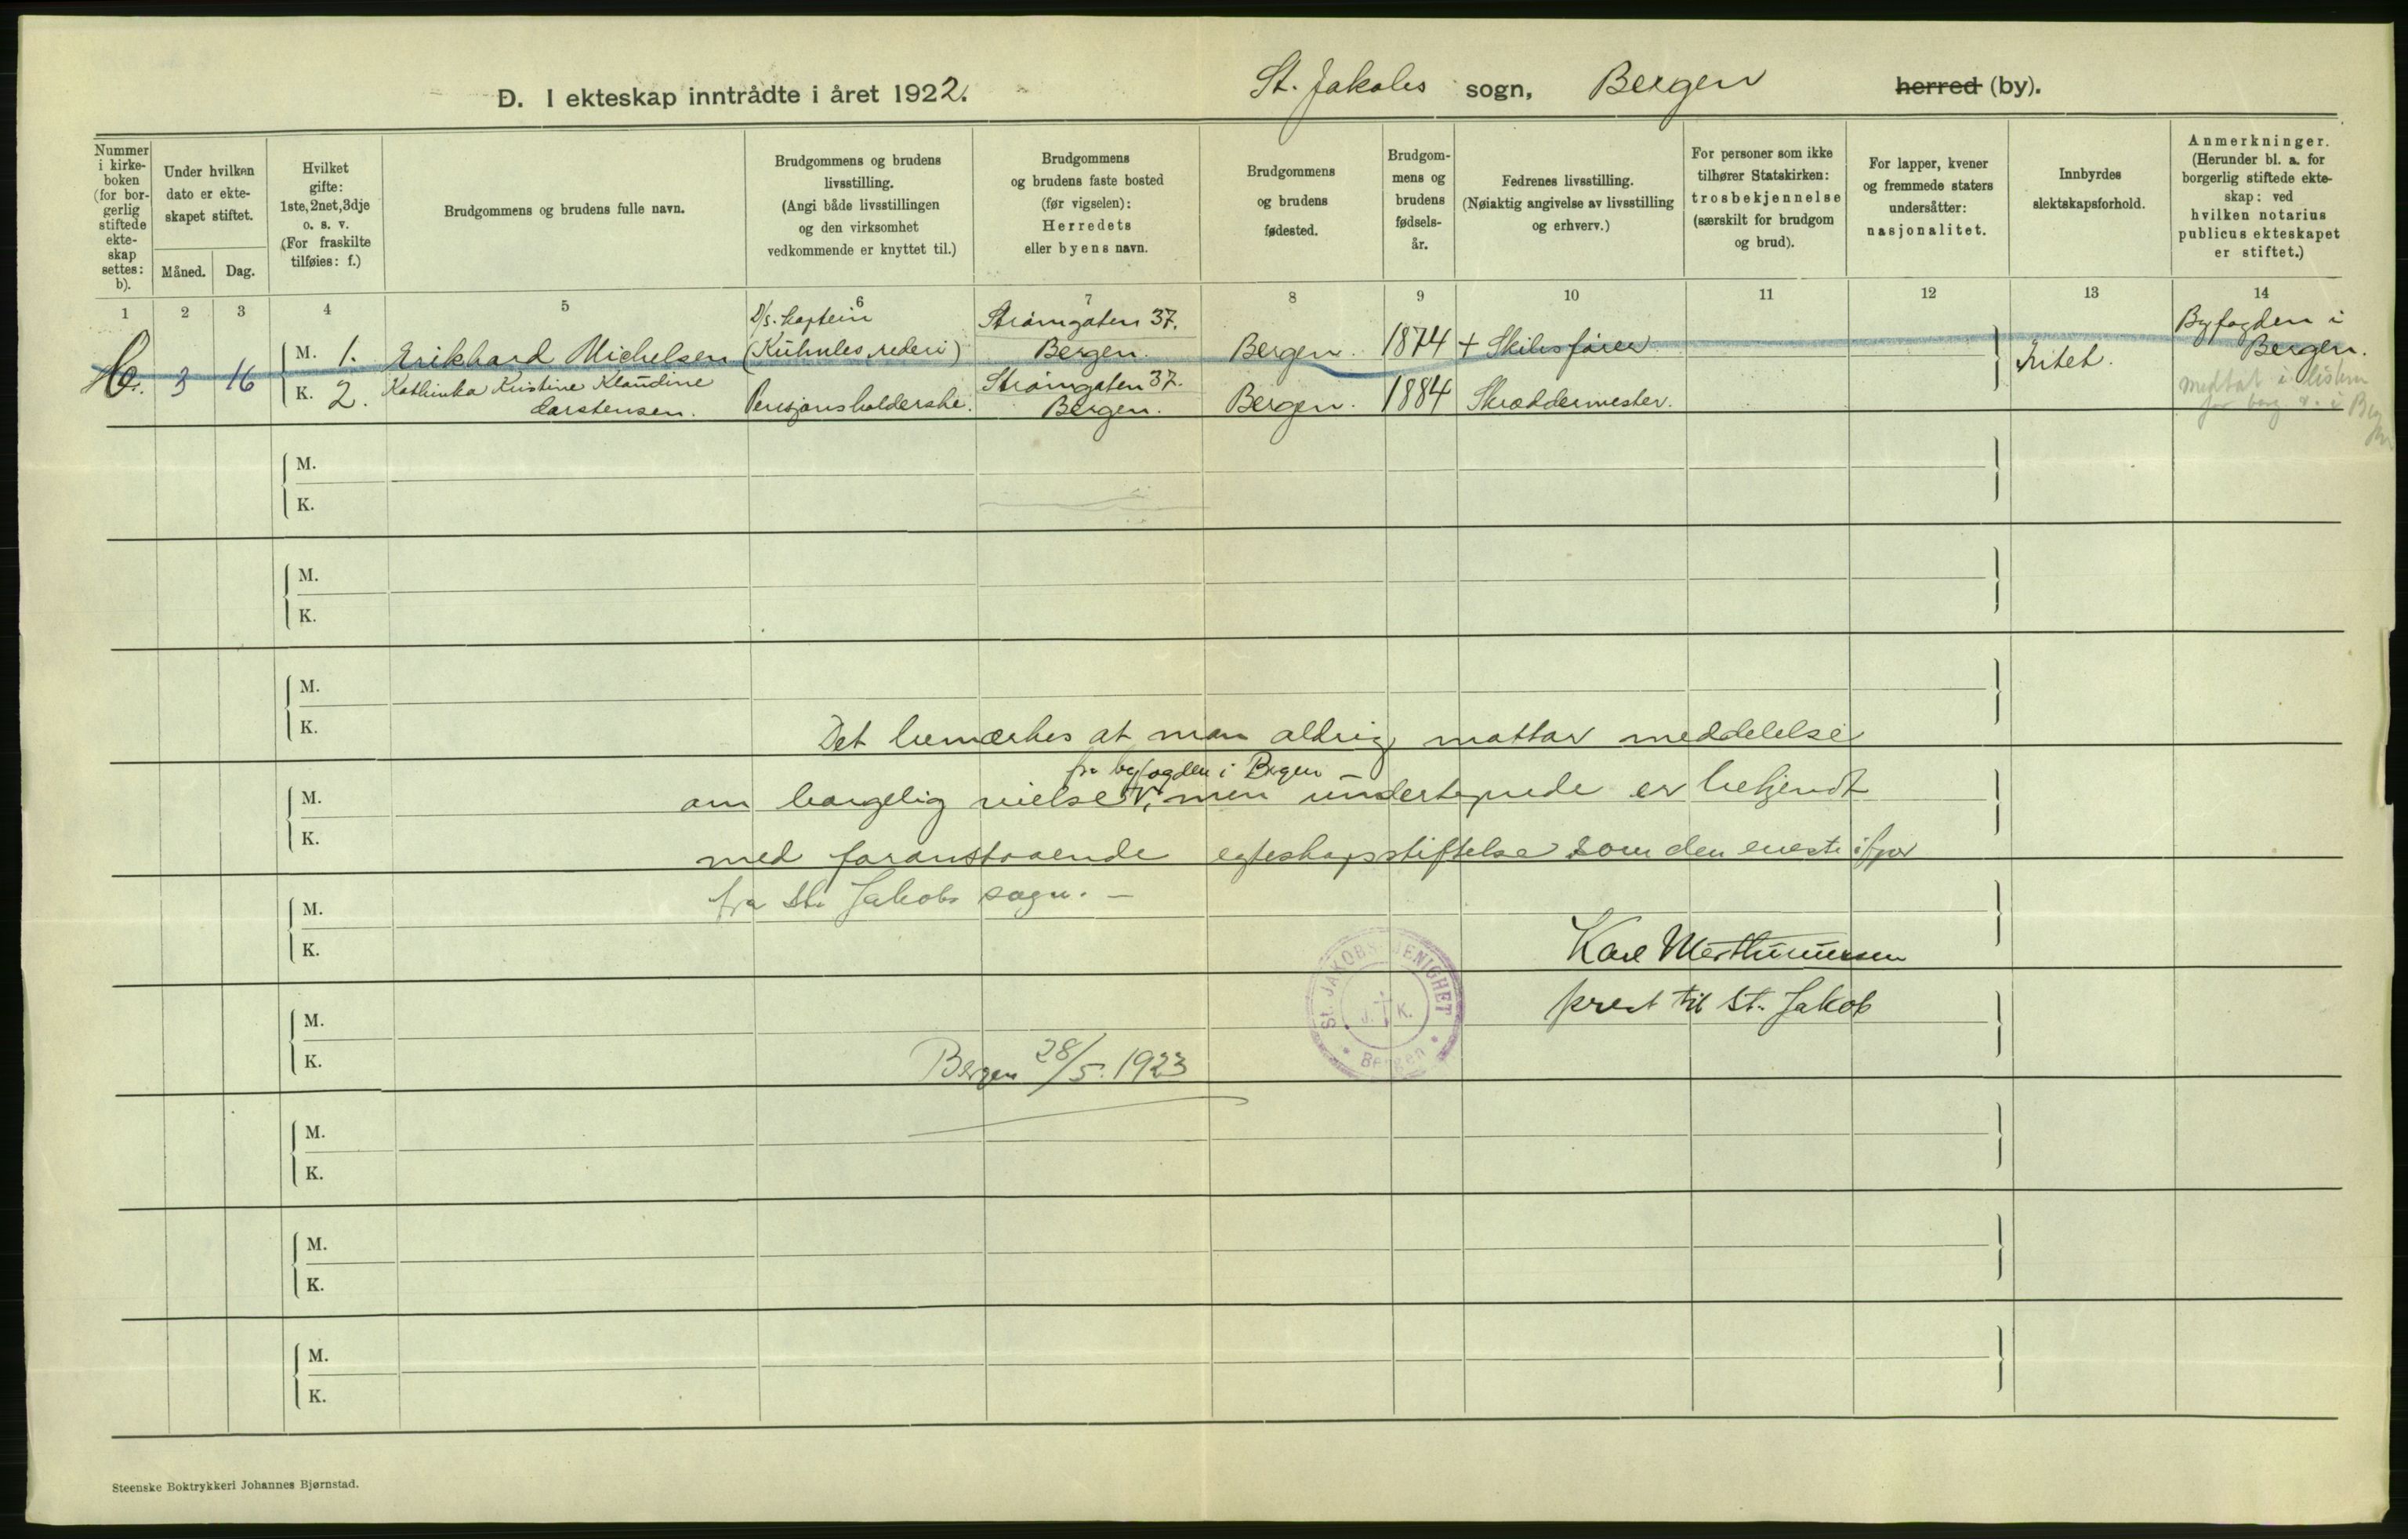 D. I ekteskap inntrådte i året 1922.
St. Jakobs sogn, Bergen herred (by).
Nummer i kirke-boken (for bor-gerlig stiftede ekte-skap settes: b).
Under hvilken dato er ekte-skapet stiftet.
Måned.
Dag.
Hvilket gifte: 1ste, 2net, 3dje o. s. v. (For fraskilte tilføies: f.)
Brudgommens og brudens fulle navn.
Brudgommens og brudens livsstilling. (Angi både livsstillingen og den virksomhet vedkommende er knyttet til.)
Brudgommens og brudens faste bosted (før vigselen): Herredets eller byens navn.
Brudgommens og brudens fødested.
Brudgom-mens og brudens fødsels-år.
Fedrenes livsstilling. (Nøiaktig angivelse av livsstilling og erhverv.)
For personer som ikke tilhører Statskirken: trosbekjennelse (særskilt for brudgom og brud).
For lapper, kvener og fremmede staters undersåtter: nasjonalitet.
Innbyrdes slektskapsforhold.
Anmerkninger. (Herunder bl. a. for borgerlig stiftede ekte-skap: ved hvilken notarius publicus ekteskapet er stiftet.)
1 2 3 4 5 6 7 8 9 10 11 12 13 14
b. 3 16
M. 1. Erikhard Michelsen D/s. kaptein (Kuhnles rederi) Strømgaten 37. Bergen. Bergen. 1874 + Skibsfører
K. 2. Kathinka Kristine Klaudine Carstensen. Pensjonsholderske. Strømgaten 37. Bergen. Bergen. 1884 Skræddermester.
Intet.
Byfogden i
Bergen.
medtat i listen
for borg. v. i
M.
K.
M.
K.
M.
K.
Det bemærkes at man aldrig mottar meddelelse
M.
fra byfogden i Bergen
om borgelig vielser, men undertegnede er bekjendt
K.
med foranstaaende egteskapsstiftelse som den eneste ifjor
fra St. Jakobs sogn. –
M.
K.
Karl Marthinussen
prest til St. Jakob
St. JAKOBS MENIGHET
J. K.
Bergen
M.
K.
Bergen 28/5. 1923
M.
K.
M.
K.
M.
K.
Steenske Boktrykkeri Johannes Bjørnstad.